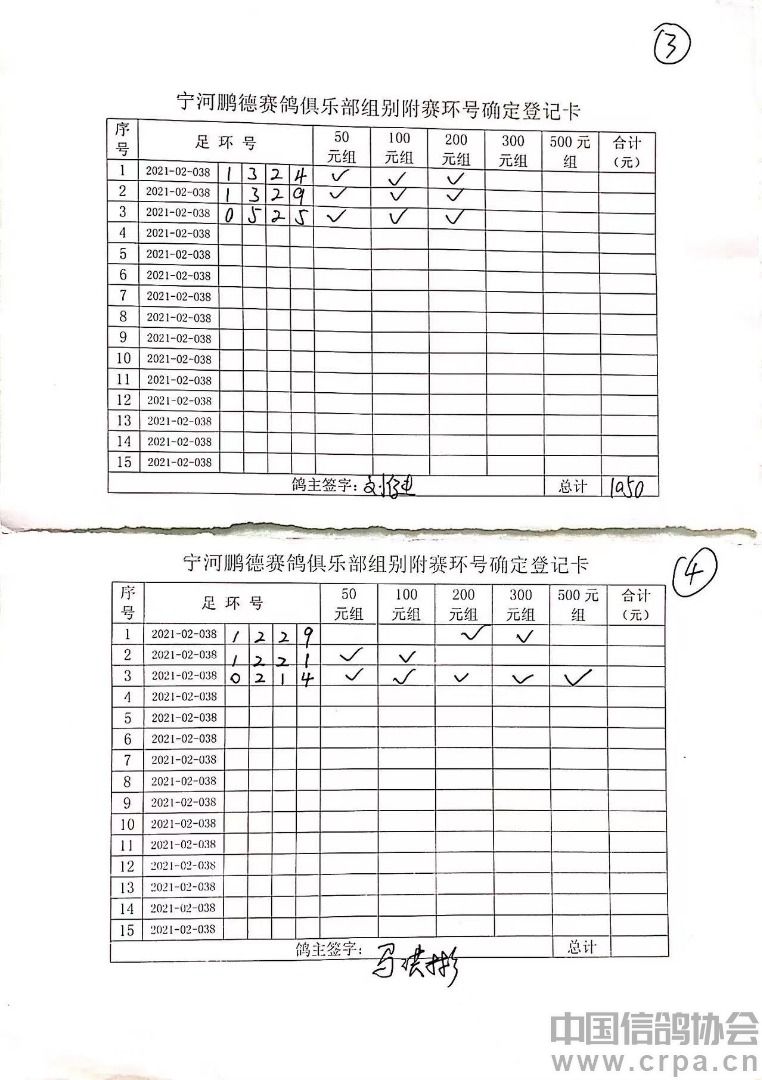 ③
宁河鹏德赛鸽俱乐部组别附赛环号确定登记卡
序号 足环号 50元组 100元组 200元组 300元组 500元组 合计(元)
1 2021-02-038 1 3 2 4 ✓ ✓ ✓
2 2021-02-038 1 3 2 9 ✓ ✓ ✓
3 2021-02-038 0 5 2 5 ✓ ✓ ✓
4 2021-02-038
5 2021-02-038
6 2021-02-038
7 2021-02-038
8 2021-02-038
9 2021-02-038
10 2021-02-038
11 2021-02-038
12 2021-02-038
13 2021-02-038
14 2021-02-038
15 2021-02-038
鸽主签字: 总计 1050
④
宁河鹏德赛鸽俱乐部组别附赛环号确定登记卡
序号 足环号 50元组 100元组 200元组 300元组 500元组 合计(元)
1 2021-02-038 1 2 2 9 ✓ ✓
2 2021-02-038 1 2 2 1 ✓ ✓
3 2021-02-038 0 2 1 4 ✓ ✓ ✓ ✓ ✓
4 2021-02-038
5 2021-02-038
6 2021-02-038
7 2021-02-038
8 2021-02-038
9 2021-02-038
10 2021-02-038
11 2021-02-038
12 2021-02-038
13 2021-02-038
14 2021-02-038
15 2021-02-038
鸽主签字: 马洪彬 总计
中国信鸽协会
www.crpa.cn